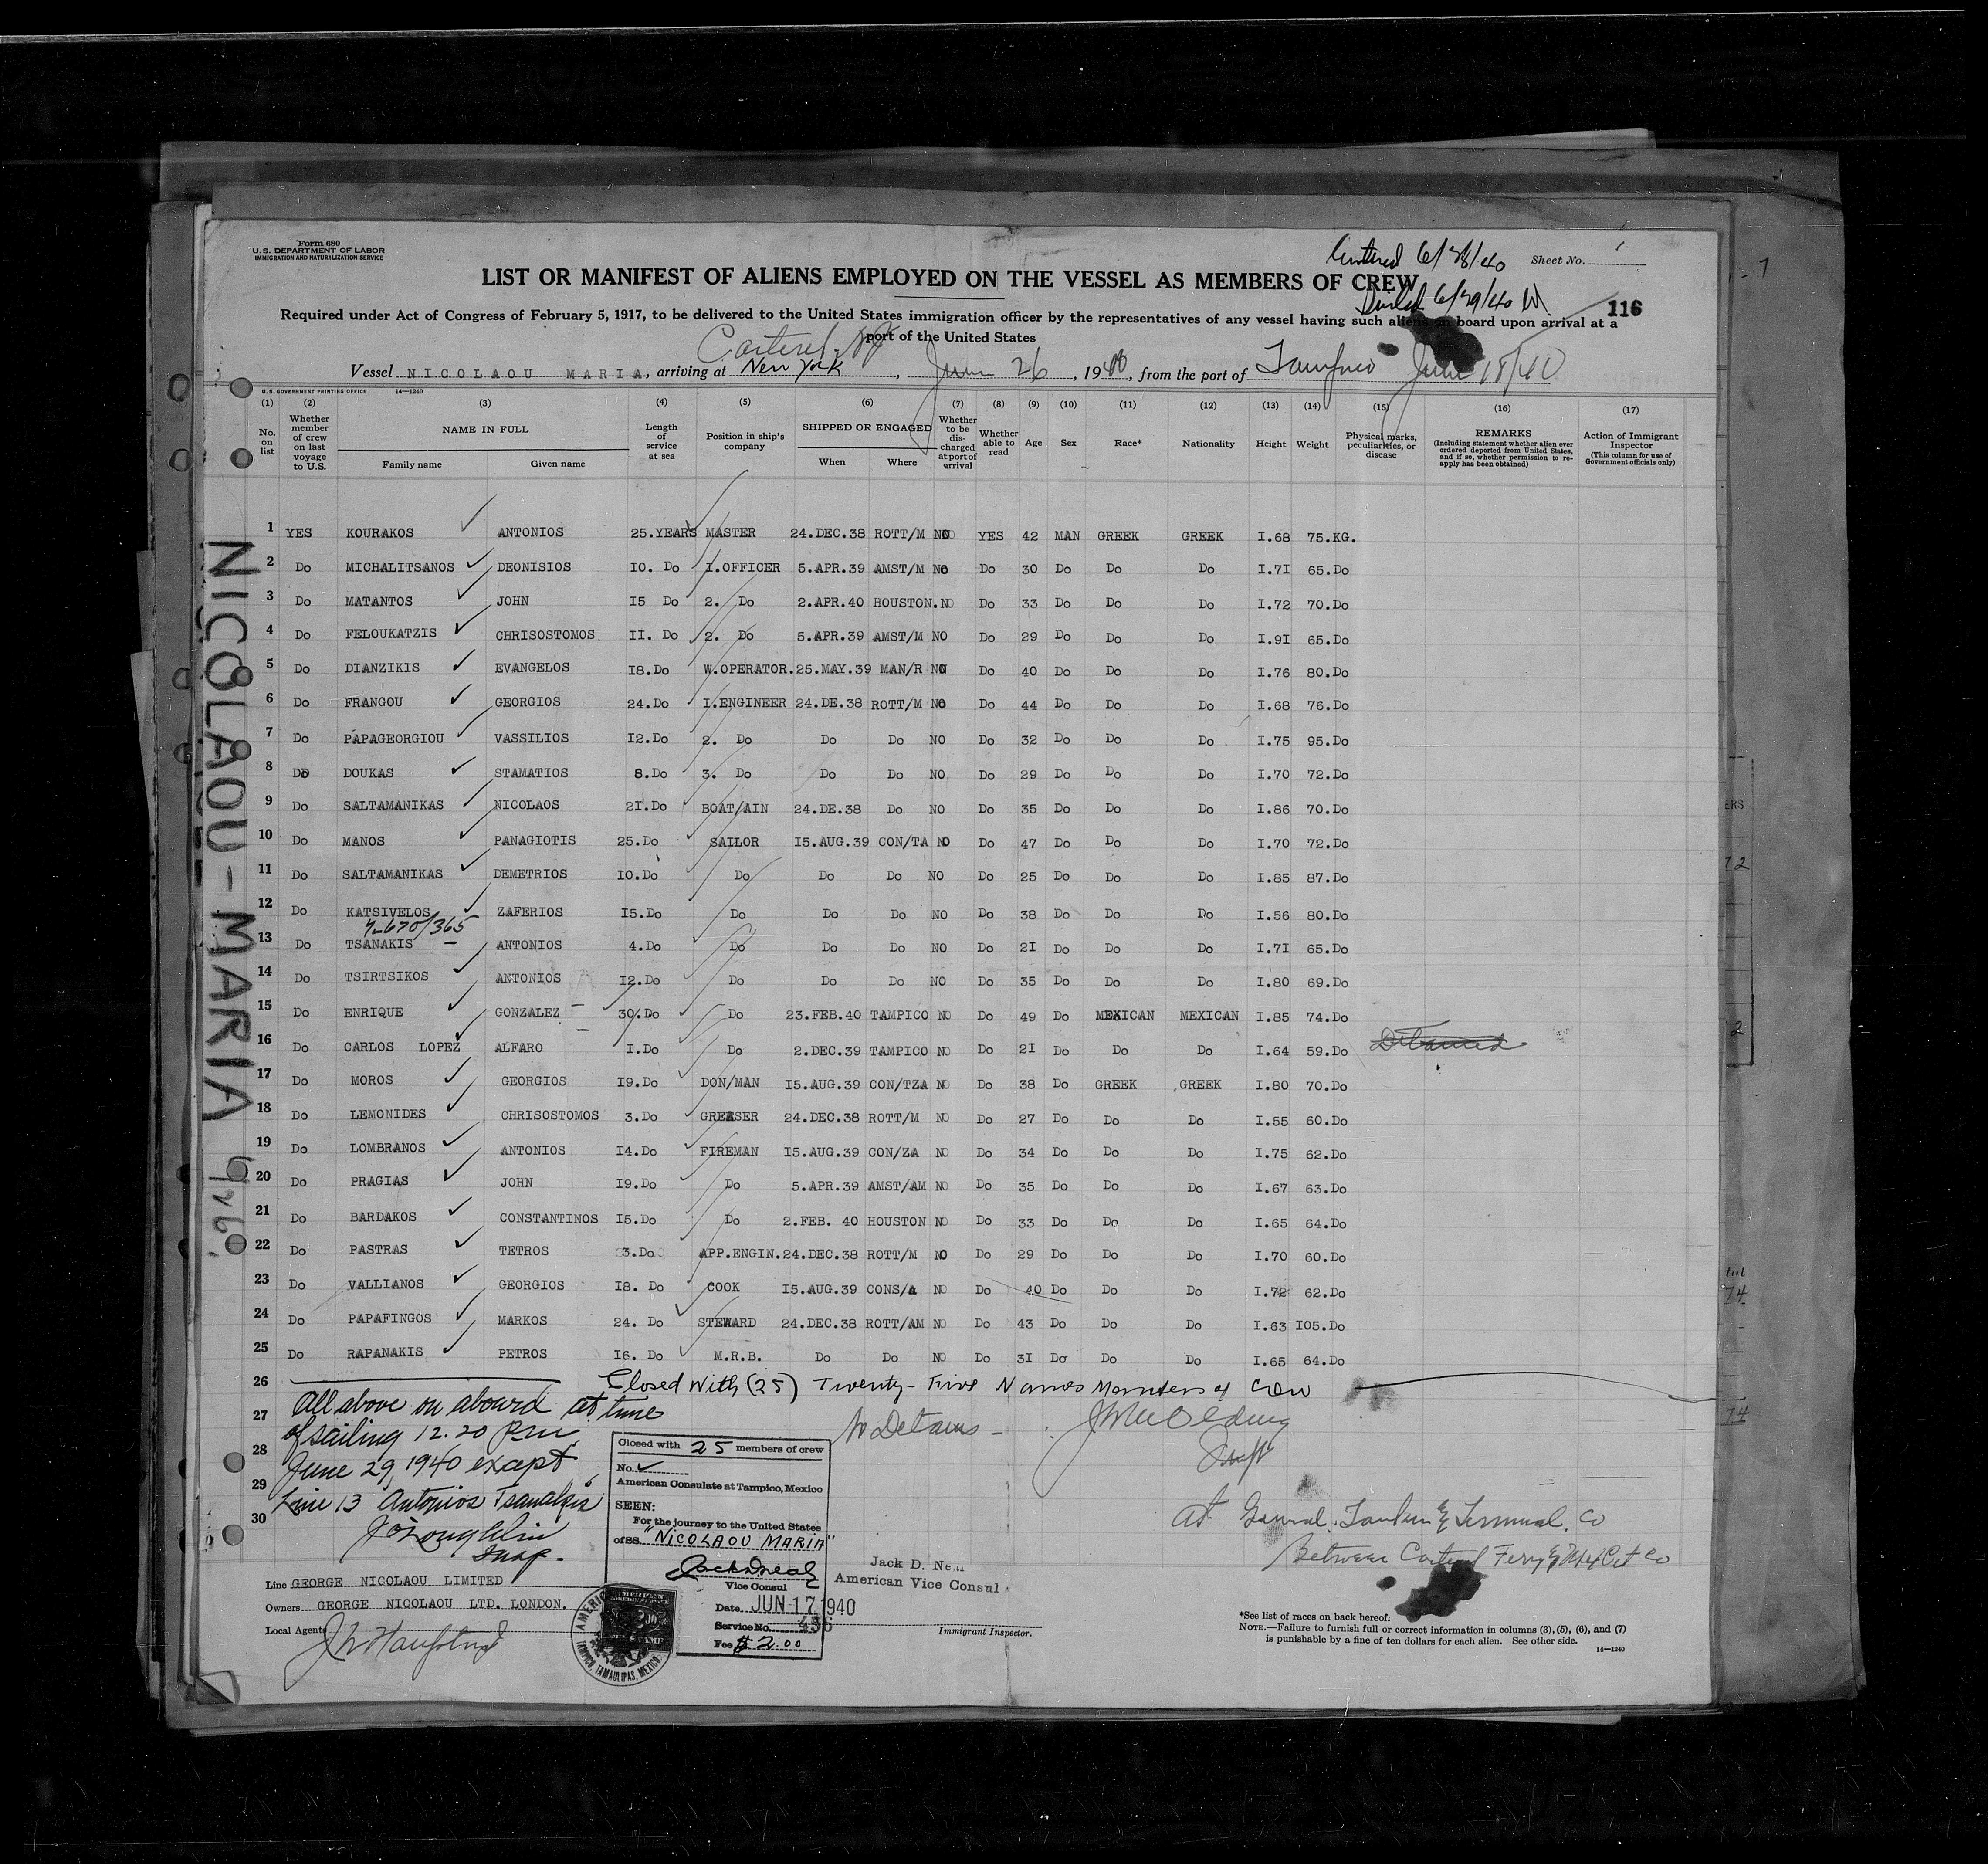 Form 680
U.S. DEPARTMENT OF LABOR
IMMIGRATION AND NATURALIZATION SERVICE
Entered 6/28/40
Sheet No. 1
LIST OR MANIFEST OF ALIENS EMPLOYED ON THE VESSEL AS MEMBERS OF CREW
Sailed 6/29/40
116
Required under Act of Congress of February 5, 1917, to be delivered to the United States immigration officer by the representatives of any vessel having such aliens on board upon arrival at a
port of the United States
Carteret NJ
Vessel NICOLAOU MARIA, arriving at New York, June 26, 1940, from the port of Tampico June 18/40
U.S. GOVERNMENT PRINTING OFFICE 14—1240
(1) (2) (3) (4) (5) (6) (7) (8) (9) (10) (11) (12) (13) (14) (15) (16) (17)
No. on list
Whether member of crew on last voyage to U.S.
NAME IN FULL
Family name
Given name
Length of service at sea
Position in ship's company
SHIPPED OR ENGAGED
When
Where
Whether to be discharged at port of arrival
Whether able to read
Age
Sex
Race*
Nationality
Height
Weight
Physical marks, peculiarities, or disease
REMARKS
(Including statement whether alien ever ordered deported from United States, and if so, whether permission to reapply has been obtained)
Action of Immigrant Inspector
(This column for use of Government officials only)
1 YES KOURAKOS ANTONIOS 25.YEARS MASTER 24.DEC.38 ROTT/M NO YES 42 MAN GREEK GREEK I.68 75.KG.
2 Do MICHALITSANOS DEONISIOS IO. Do I.OFFICER 5.APR.39 AMST/M NO Do 30 Do Do Do I.7I 65.Do
3 Do MATANTOS JOHN I5 Do 2. Do 2.APR.40 HOUSTON. NO Do 33 Do Do Do I.72 70.Do
4 Do FELOUKATZIS CHRISOSTOMOS II. Do 2. Do 5.APR.39 AMST/M NO Do 29 Do Do Do I.9I 65.Do
5 Do DIANZIKIS EVANGELOS I8.Do W.OPERATOR. 25.MAY.39 MAN/R NO Do 40 Do Do Do I.76 80.Do
6 Do FRANGOU GEORGIOS 24.Do I.ENGINEER 24.DE.38 ROTT/M NO Do 44 Do Do Do I.68 76.Do
7 Do PAPAGEORGIOU VASSILIOS I2.Do 2. Do Do Do NO Do 32 Do Do Do I.75 95.Do
8 Do DOUKAS STAMATIOS 8.Do 3. Do Do Do NO Do 29 Do Do Do I.70 72.Do
9 Do SALTAMANIKAS NICOLAOS 2I.Do BOAT/AIN 24.DE.38 Do NO Do 35 Do Do Do I.86 70.Do
10 Do MANOS PANAGIOTIS 25.Do SAILOR I5.AUG.39 CON/TA NO Do 47 Do Do Do I.70 72.Do
11 Do SALTAMANIKAS DEMETRIOS IO.Do Do Do Do NO Do 25 Do Do Do I.85 87.Do
12 Do KATSIVELOS ZAFERIOS I5.Do Do Do Do NO Do 38 Do Do Do I.56 80.Do
4-670/365
13 Do TSANAKIS ANTONIOS 4.Do Do Do Do NO Do 2I Do Do Do I.7I 65.Do
14 Do TSIRTSIKOS ANTONIOS I2.Do Do Do Do NO Do 35 Do Do Do I.80 69.Do
15 Do ENRIQUE GONZALEZ 30.Do Do 23.FEB.40 TAMPICO NO Do 49 Do MEXICAN MEXICAN I.85 74.Do
16 Do CARLOS LOPEZ ALFARO I.Do Do 2.DEC.39 TAMPICO NO Do 2I Do Do Do I.64 59.Do Detained
17 Do MOROS GEORGIOS I9.Do DON/MAN I5.AUG.39 CON/TZA NO Do 38 Do GREEK GREEK I.80 70.Do
18 Do LEMONIDES CHRISOSTOMOS 3.Do GREASER 24.DEC.38 ROTT/M NO Do 27 Do Do Do I.55 60.Do
19 Do LOMBRANOS ANTONIOS I4.Do FIREMAN I5.AUG.39 CON/ZA NO Do 34 Do Do Do I.75 62.Do
20 Do PRAGIAS JOHN I9.Do Do 5.APR.39 AMST/AM NO Do 35 Do Do Do I.67 63.Do
21 Do BARDAKOS CONSTANTINOS I5.Do Do 2.FEB. 40 HOUSTON NO Do 33 Do Do Do I.65 64.Do
22 Do PASTRAS TETROS 3.Do APP.ENGIN. 24.DEC.38 ROTT/M NO Do 29 Do Do Do I.70 60.Do
23 Do VALLIANOS GEORGIOS I8. Do COOK I5.AUG.39 CONS/A NO Do 40 Do Do Do I.72 62.Do
24 Do PAPAFINGOS MARKOS 24. Do STEWARD 24.DEC.38 ROTT/AM NO Do 43 Do Do Do I.63 I05.Do
25 Do RAPANAKIS PETROS I6. Do M.R.B. Do Do NO Do 3I Do Do Do I.65 64.Do
26 Closed with (25) Twenty-Five Names Members of Crew
27
28
29
30
All above on aboard at time
of sailing 12.20 Pm
June 29, 1940 except
Line 13 Antonios Tsanakis
J O'Loughlin
Insp.
No Detains
Insp
Closed with 25 members of crew
No.
American Consulate at Tampico, Mexico
SEEN:
For the journey to the United States
of SS. "NICOLAOU MARIA"
Vice Consul
Date JUN 17 1940
Service No. 436
Fee $2.00
Jack D. Neal
American Vice Consul
At General Tankers & Terminal Co
Between Carteret Ferry &
Line GEORGE NICOLAOU LIMITED
Owners GEORGE NICOLAOU LTD. LONDON.
Local Agents
Immigrant Inspector.
*See list of races on back hereof.
NOTE.—Failure to furnish full or correct information in columns (3), (5), (6), and (7)
is punishable by a fine of ten dollars for each alien. See other side.
14—1240
NICOLAOU-MARIA